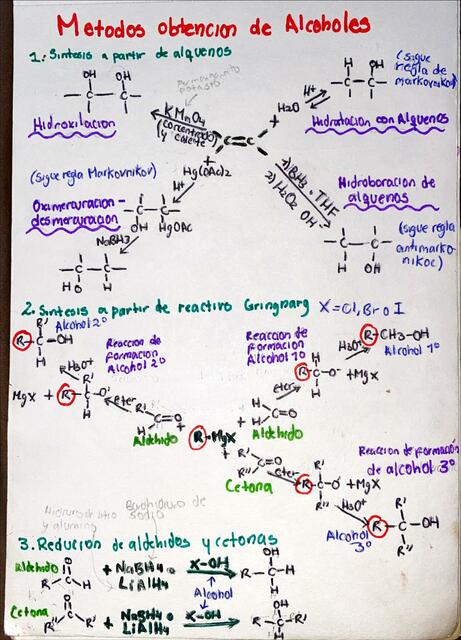 Metodos obtencion de Alcoholes
1. Sintesis a partir de alquenos
OH OH
-C-C-
H H
Hidroxilacion
permanganato
potasio
KMnO4
(concentrado
y caliente
C=C
+ H2O
H+
H OH
-C-C-
(sigue
regla de
markovnikov)
Hidratacion con Alquenos
(sigue regla Markovnikov)
Oximercuracion-
desmercuracion
+
Hg(OAc)2
H+
-C-C-
OH HgOAc
NaBH3
-C-C-
HO H
1) BH3 · THF
2) H2O2 OH-
Hidroboracion de
alquenos
-C-C-
H OH
(sigue regla
antimarko-
nikoc)
2. Sintesis a partir de reactivo Gringnarg X=Cl, Br o I
R-C-OH
R'
H
Alcohol 2°
Reaccion de
formacion
Alcohol 2°
H3O+
MgX + R-C-O-
R'
H
eter
R'
C=O
H
Aldehido
+
R-MgX
+
Reaccion de
formacion
Alcohol 1°
H
C=O
H
Aldehido
eter
H
R-C-O- +MgX
H
H3O+
R-CH3-OH
Alcohol 1°
R'
C=O
R''
Cetona
eter
R'
R-C-O- +MgX
R''
Reaccion de formación
de alcohol 3°
H3O+
R'
R-C-OH
R''
Alcohol
3°
3. Reducion de aldehidos y cetonas
Aldehido
O
R-C-H
+ NaBH4 o
LiAlH4
X-OH
OH
R-C-H
H
Alcohol
Cetona
O
R-C-R'
+ NaBH4 o
LiAlH4
X-OH
OH
R-C-R'
H